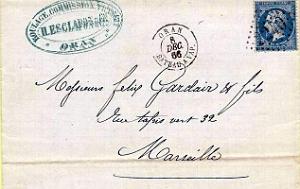 ROULAGE, COMMISSION, TRANSIT
H. ESCLAPON
ORAN
ORAN
8
DEC.
66
Messieurs Felix Gardair & fils
Rue tapis vert 32
Marseille